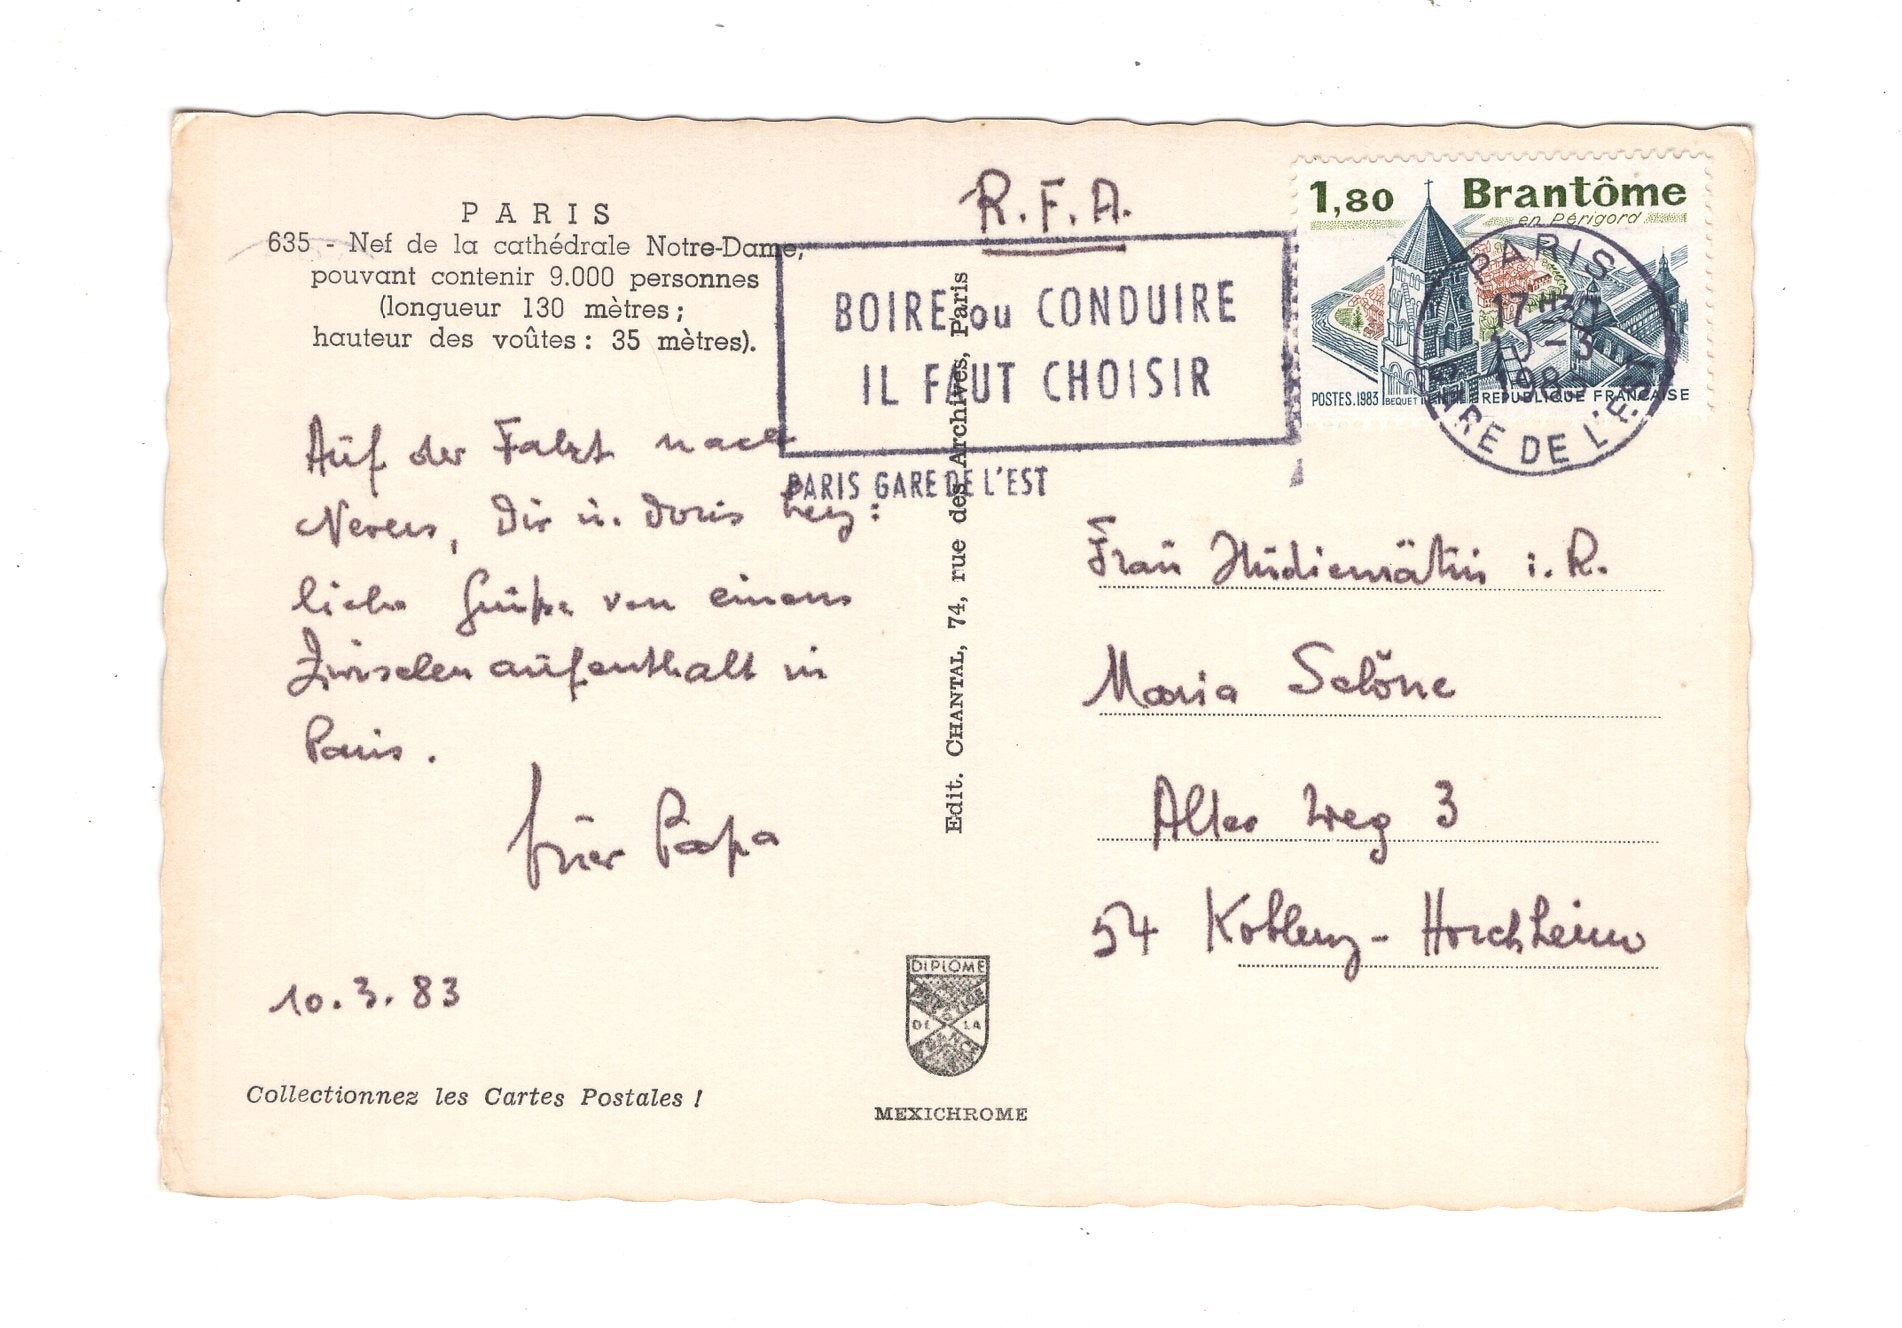 PARIS
635 - Nef de la cathédrale Notre-Dame,
pouvant contenir 9.000 personnes
(longueur 130 mètres ;
hauteur des voûtes : 35 mètres).
Auf der Fahrt nach
Nevers, Dir u. Doris herz:
liche Grüße von einem
Zwischenaufenthalt in
Paris.
Papa
10.3.83
Collectionnez les Cartes Postales !
Edit. CHANTAL, 74, rue des Archives, Paris
DIPLOME
DE LA
MEXICHROME
R.F.A.
BOIRE ou CONDUIRE
IL FAUT CHOISIR
PARIS GARE DE L'EST
1,80 Brantôme
en Périgord
POSTES.1983 BEQUET REPUBLIQUE FRANÇAISE
PARIS
17H30
10-3
1983
GARE DE L'EST
Frau Studienrätin i.R.
Maria Schöne
Alter Weg 3
54 Koblenz-Horchheim